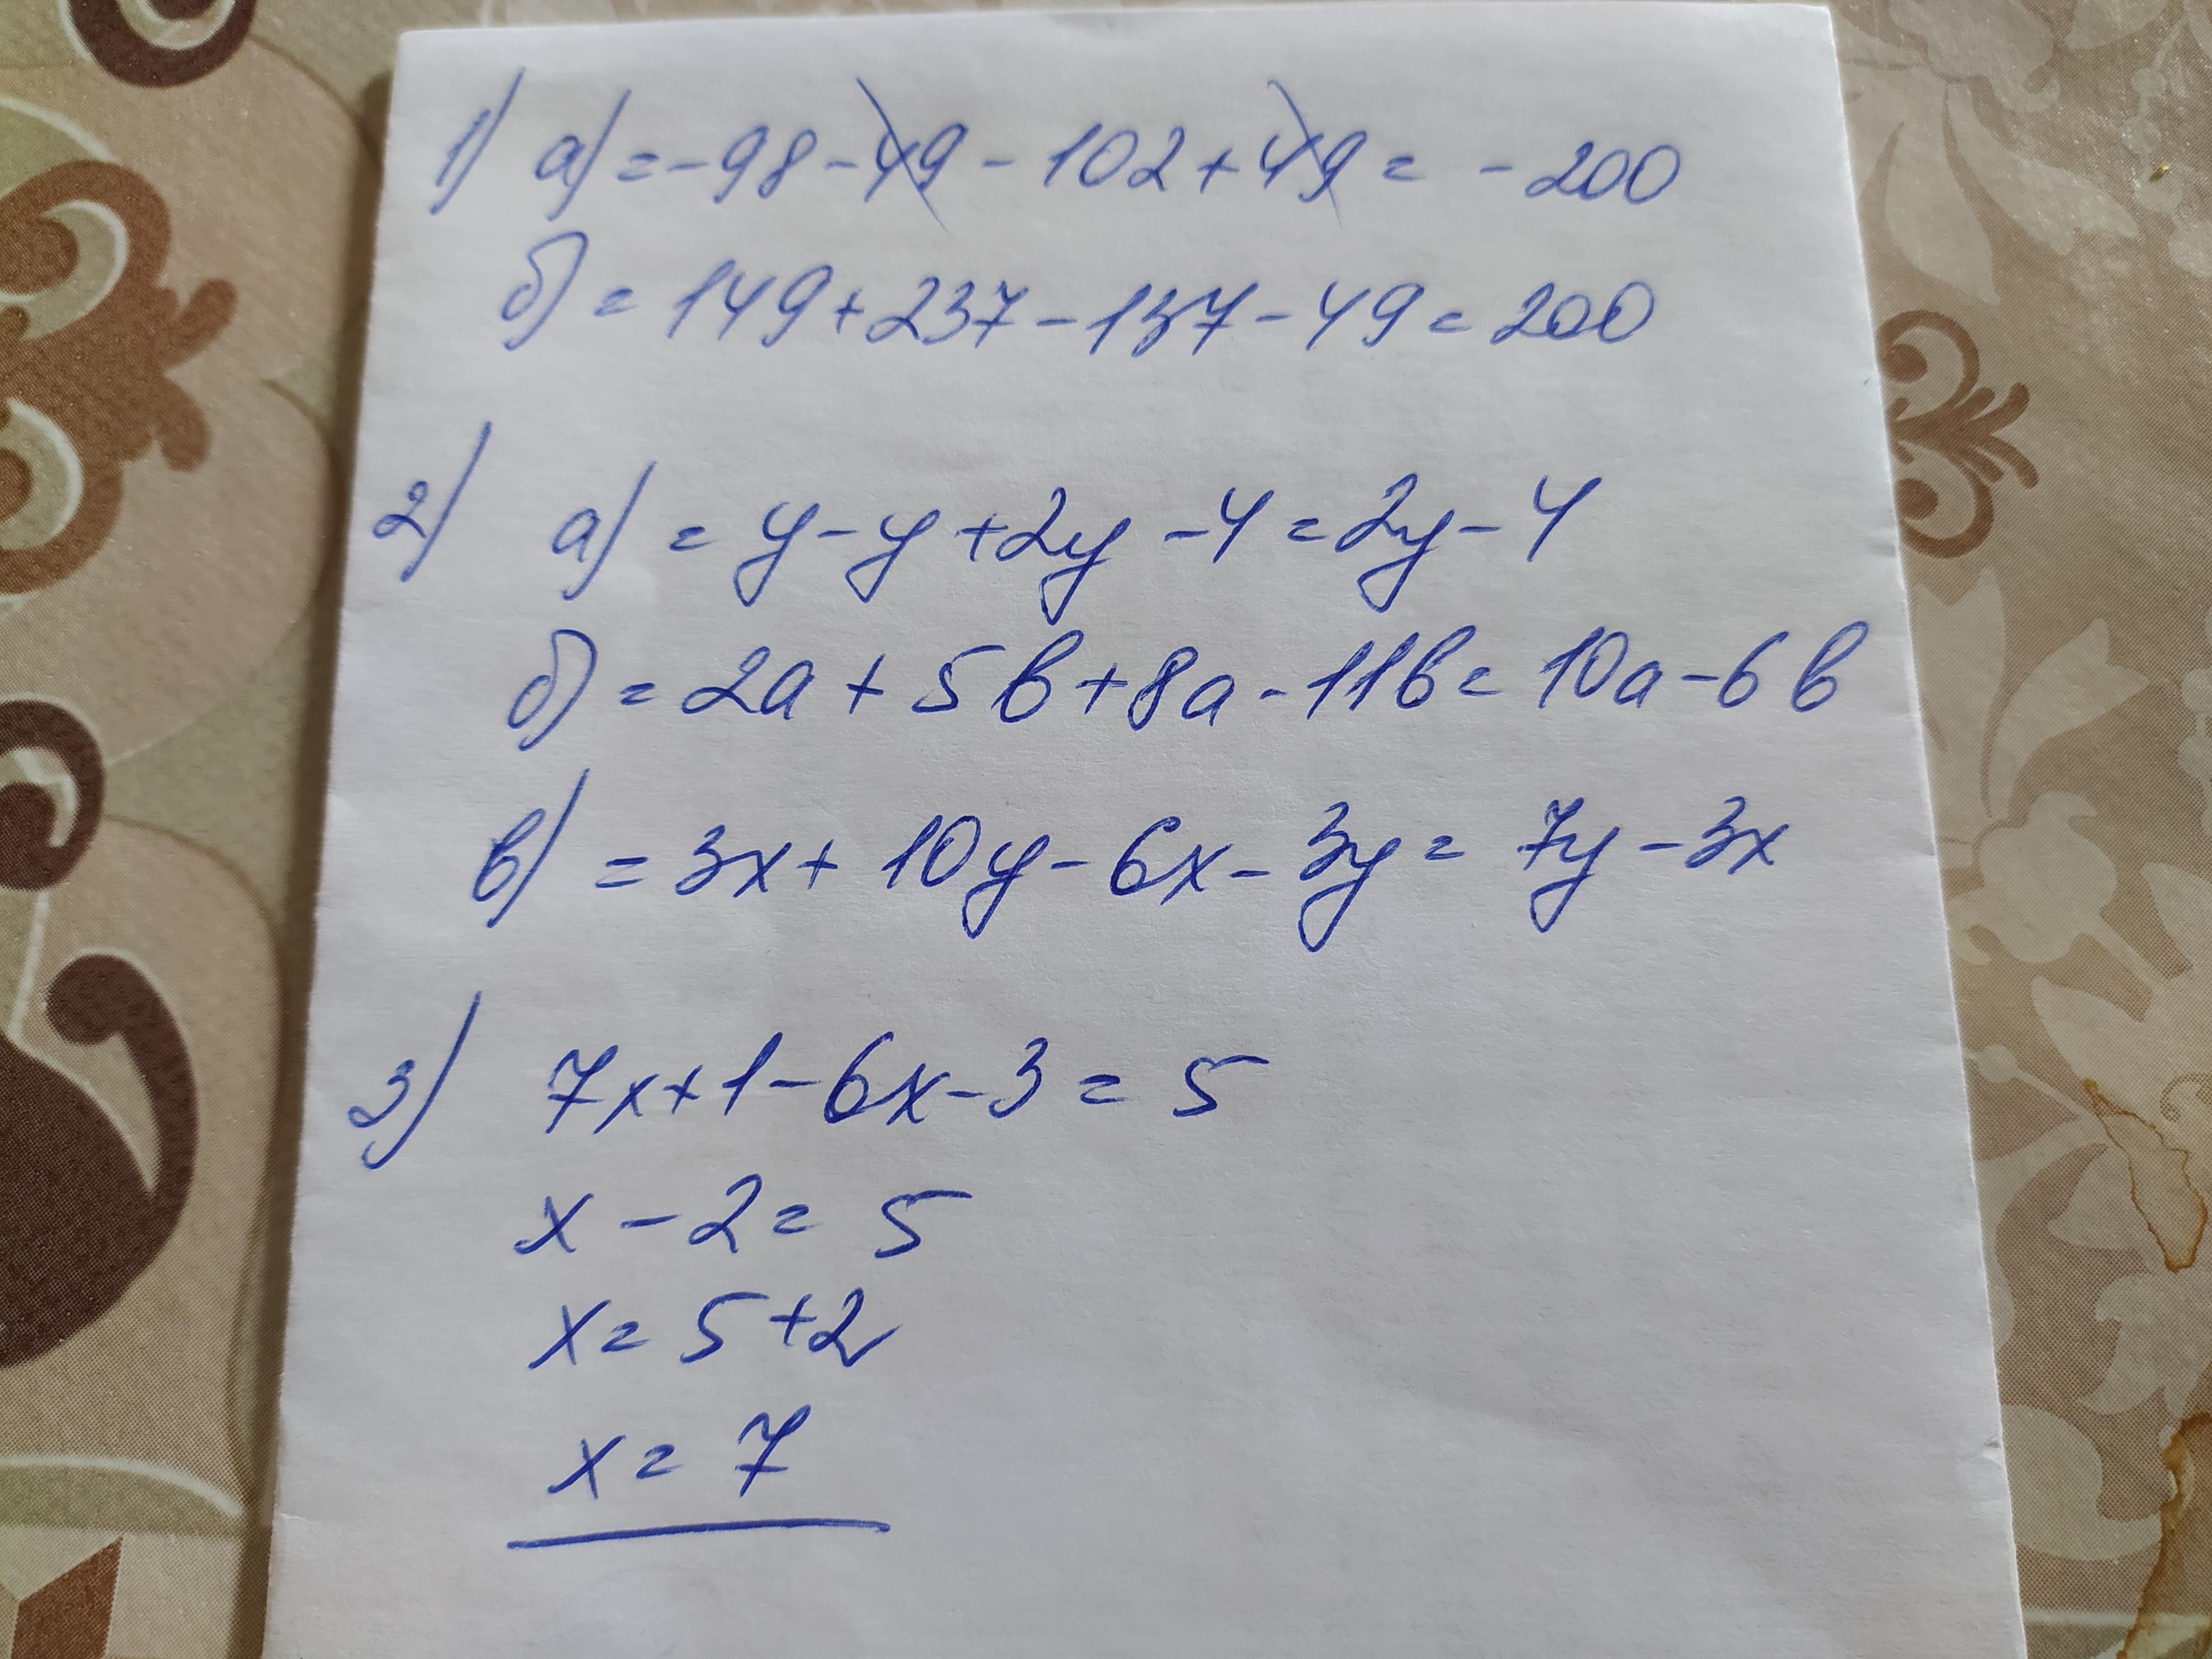 1) а) = -98 - 49 - 102 + 49 = -200
б) = 149 + 237 - 137 - 49 = 200
2) а) = y - y + 2y - 4 = 2y - 4
б) = 2a + 5b + 8a - 11b = 10a - 6b
в) = 3x + 10y - 6x - 3y = 7y - 3x
3) 7x + 1 - 6x - 3 = 5
x - 2 = 5
x = 5 + 2
x = 7